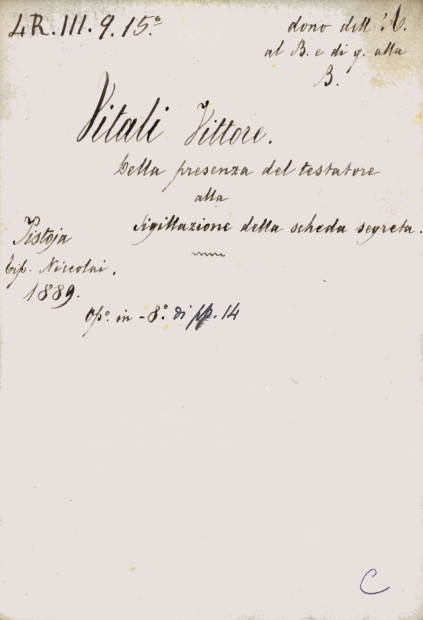 4R.III.9.15º
dono dell'A.
al B. e di q. alla
B.
Vitali Vittore.
Della presenza del testatore
alla
sigillazione della scheda segreta.
Pistoja
tip. Niccolai.
1889.
Opº. in-8º. di pp. 14
C